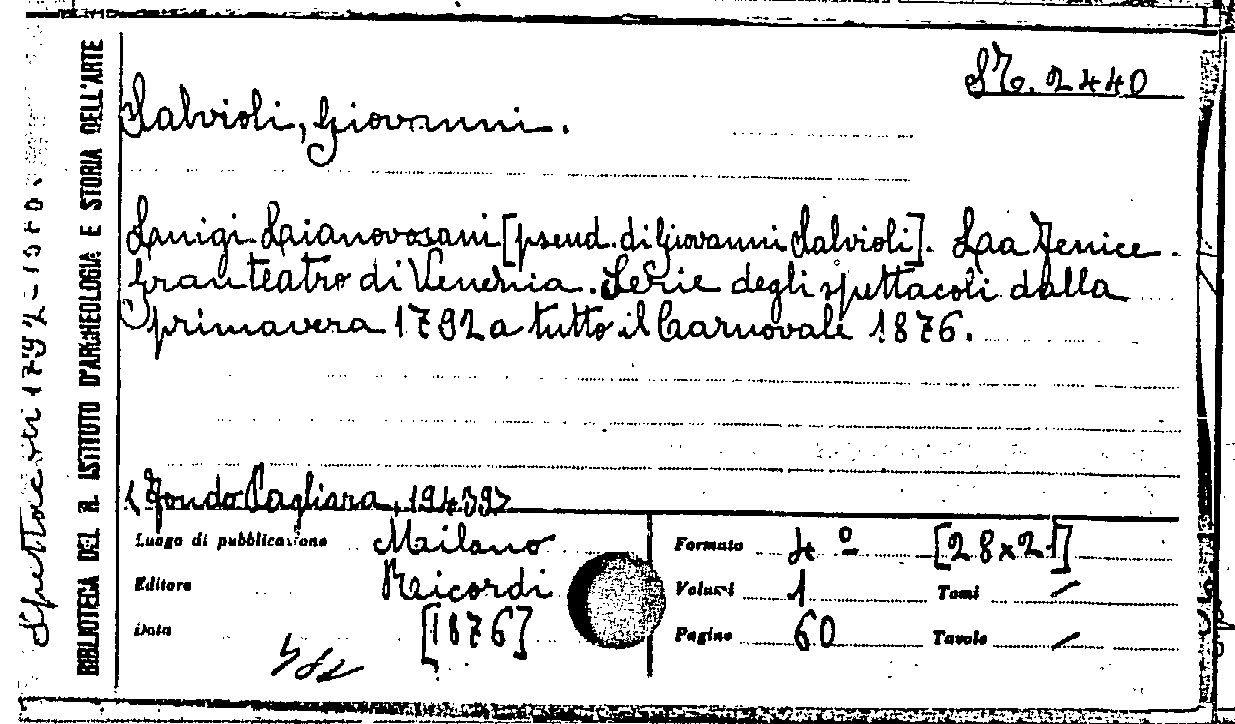 ST. 2440
Salvioli, Giovanni.
Luigi Lianovosani [pseud. di Giovanni Salvioli]. Laa Fenice.
Gran teatro di Venezia. Serie degli spettacoli dalla
primavera 1792 a tutto il Carnovale 1876.
Fondo Pagliara, 1943
Luogo di pubblicazione Milano
Editore Ricordi
Data [1876]
Formato 4º [28x21]
Volumi 1 Tomi /
Pagine 60 Tavole /
BIBLIOTECA DEL R. ISTITUTO D'ARCHEOLOGIA E STORIA DELL'ARTE
Spettacoli 1792-